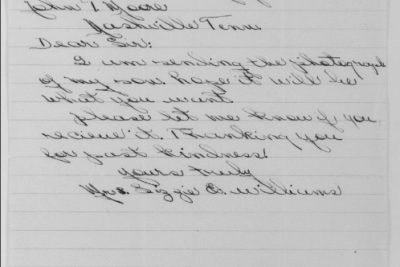 John T Moore
Nashville Tenn.
Dear Sir:
I am sending the photograph
of my son. hope it will be
what you want
please let me know if you
recieve it. Thanking you
for past kindness!
yours truly
Mrs. Lizzie O. Williams